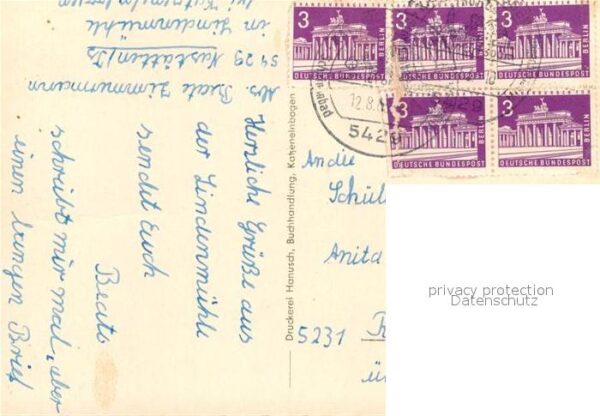 Abs. Beate Zimmermann
5429 Nastätten/Ts
in Lindenmühle
bei Katzenelnbogen
Herzliche Grüße aus
der Lindenmühle
sendet Euch
Beate
schreibt mir mal, aber
einen langen Brief
Druckerei Hanusch, Buchhandlung, Katzenelnbogen
3
3
3
3
3
BERLIN
DEUTSCHE BUNDESPOST
BERLIN
DEUTSCHE BUNDESPOST
BERLIN
DEUTSCHE BUNDESPOST
BERLIN
DEUTSCHE BUNDESPOST
BERLIN
DEUTSCHE BUNDESPOST
12.8.
5429
An die
Schül
Anita
5231
privacy protection
Datenschutz